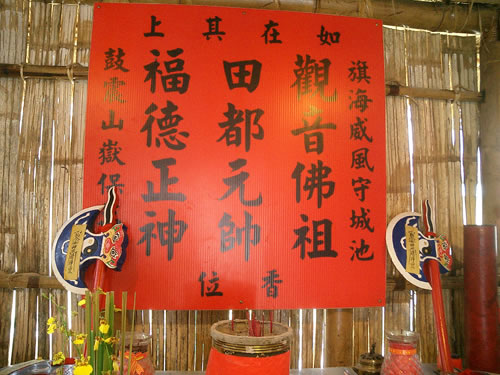 如在其上
旗海威風守城池
觀音佛祖
田都元帥
福德正神
鼓震山嶽保
香位